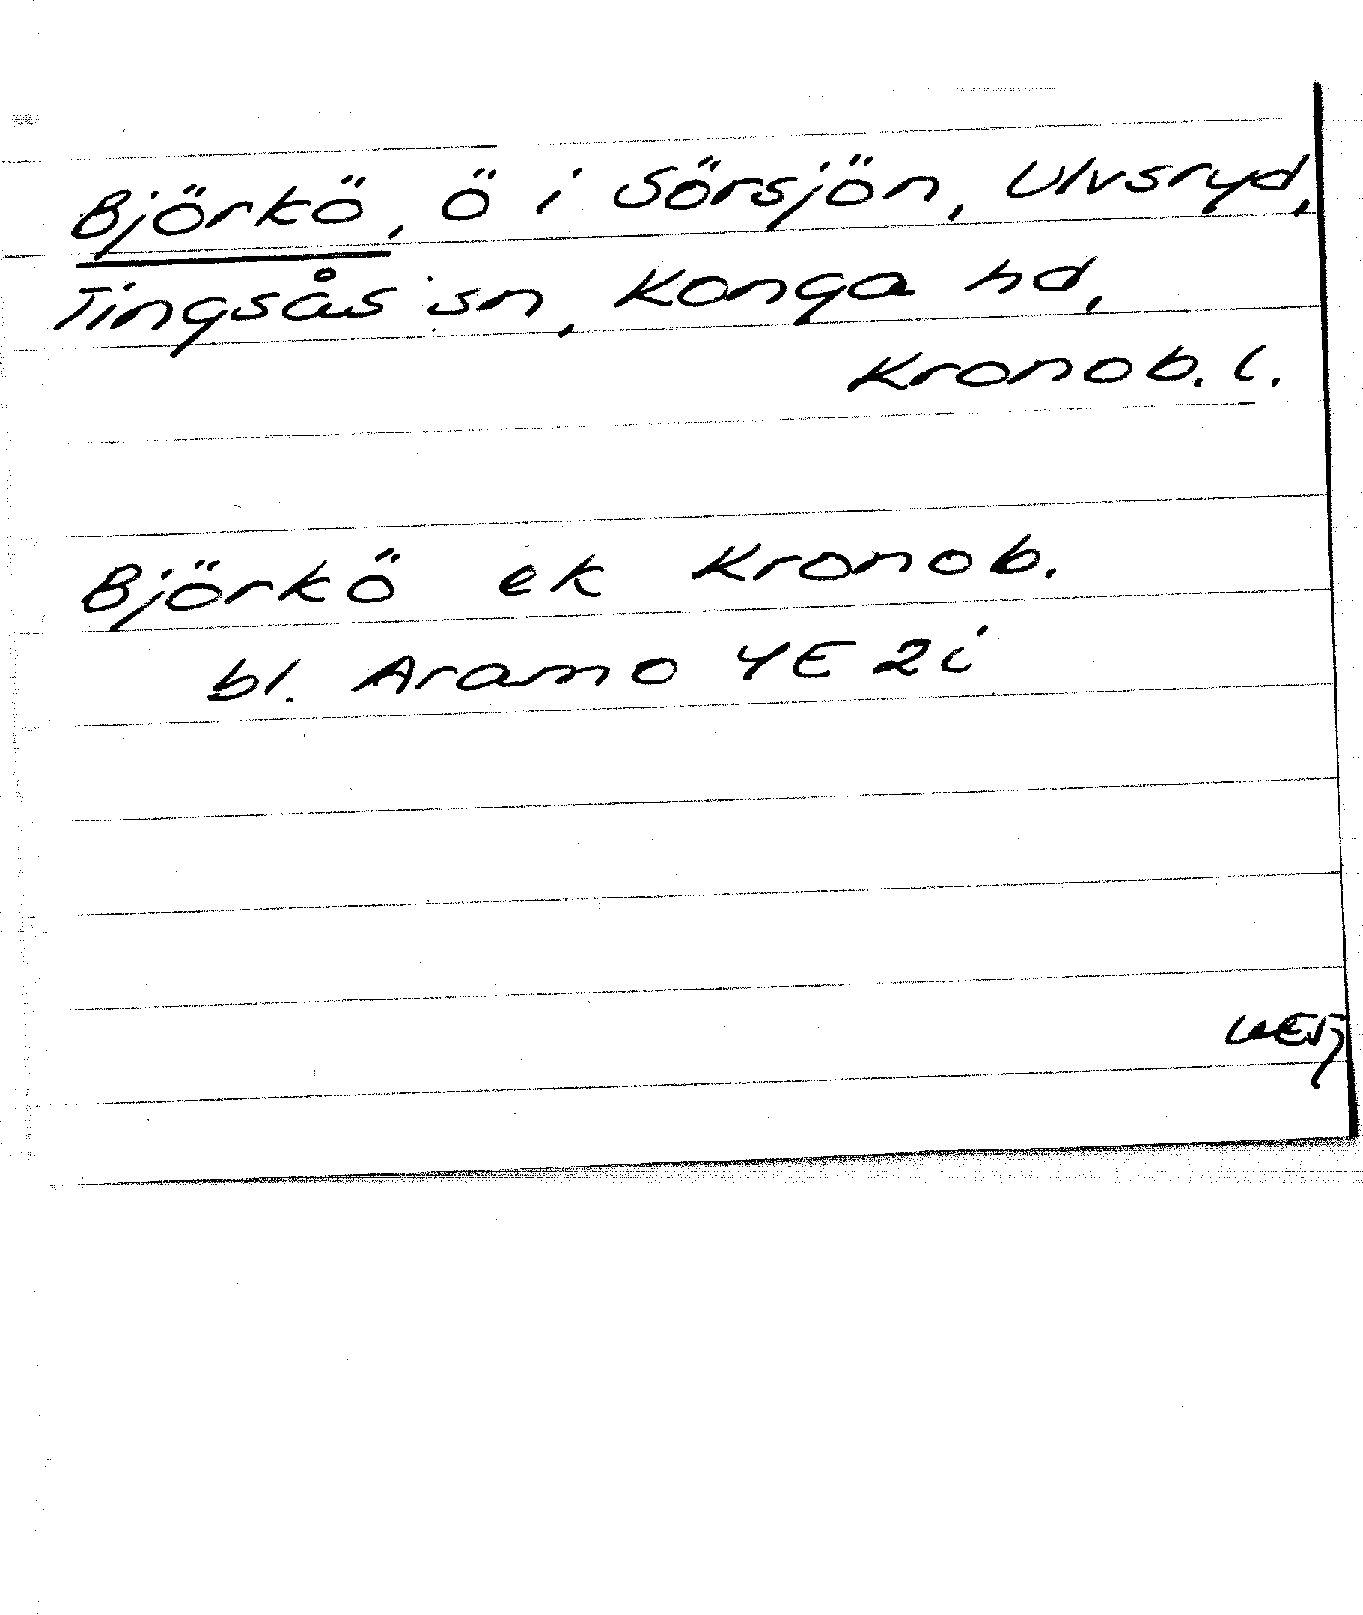 Björkö, ö i Sörsjön, Ulvsryd,
Tingsås sn, Konga hd,
Kronob. l.
Björkö ek Kronob.
bl. Aramo 4E 2i